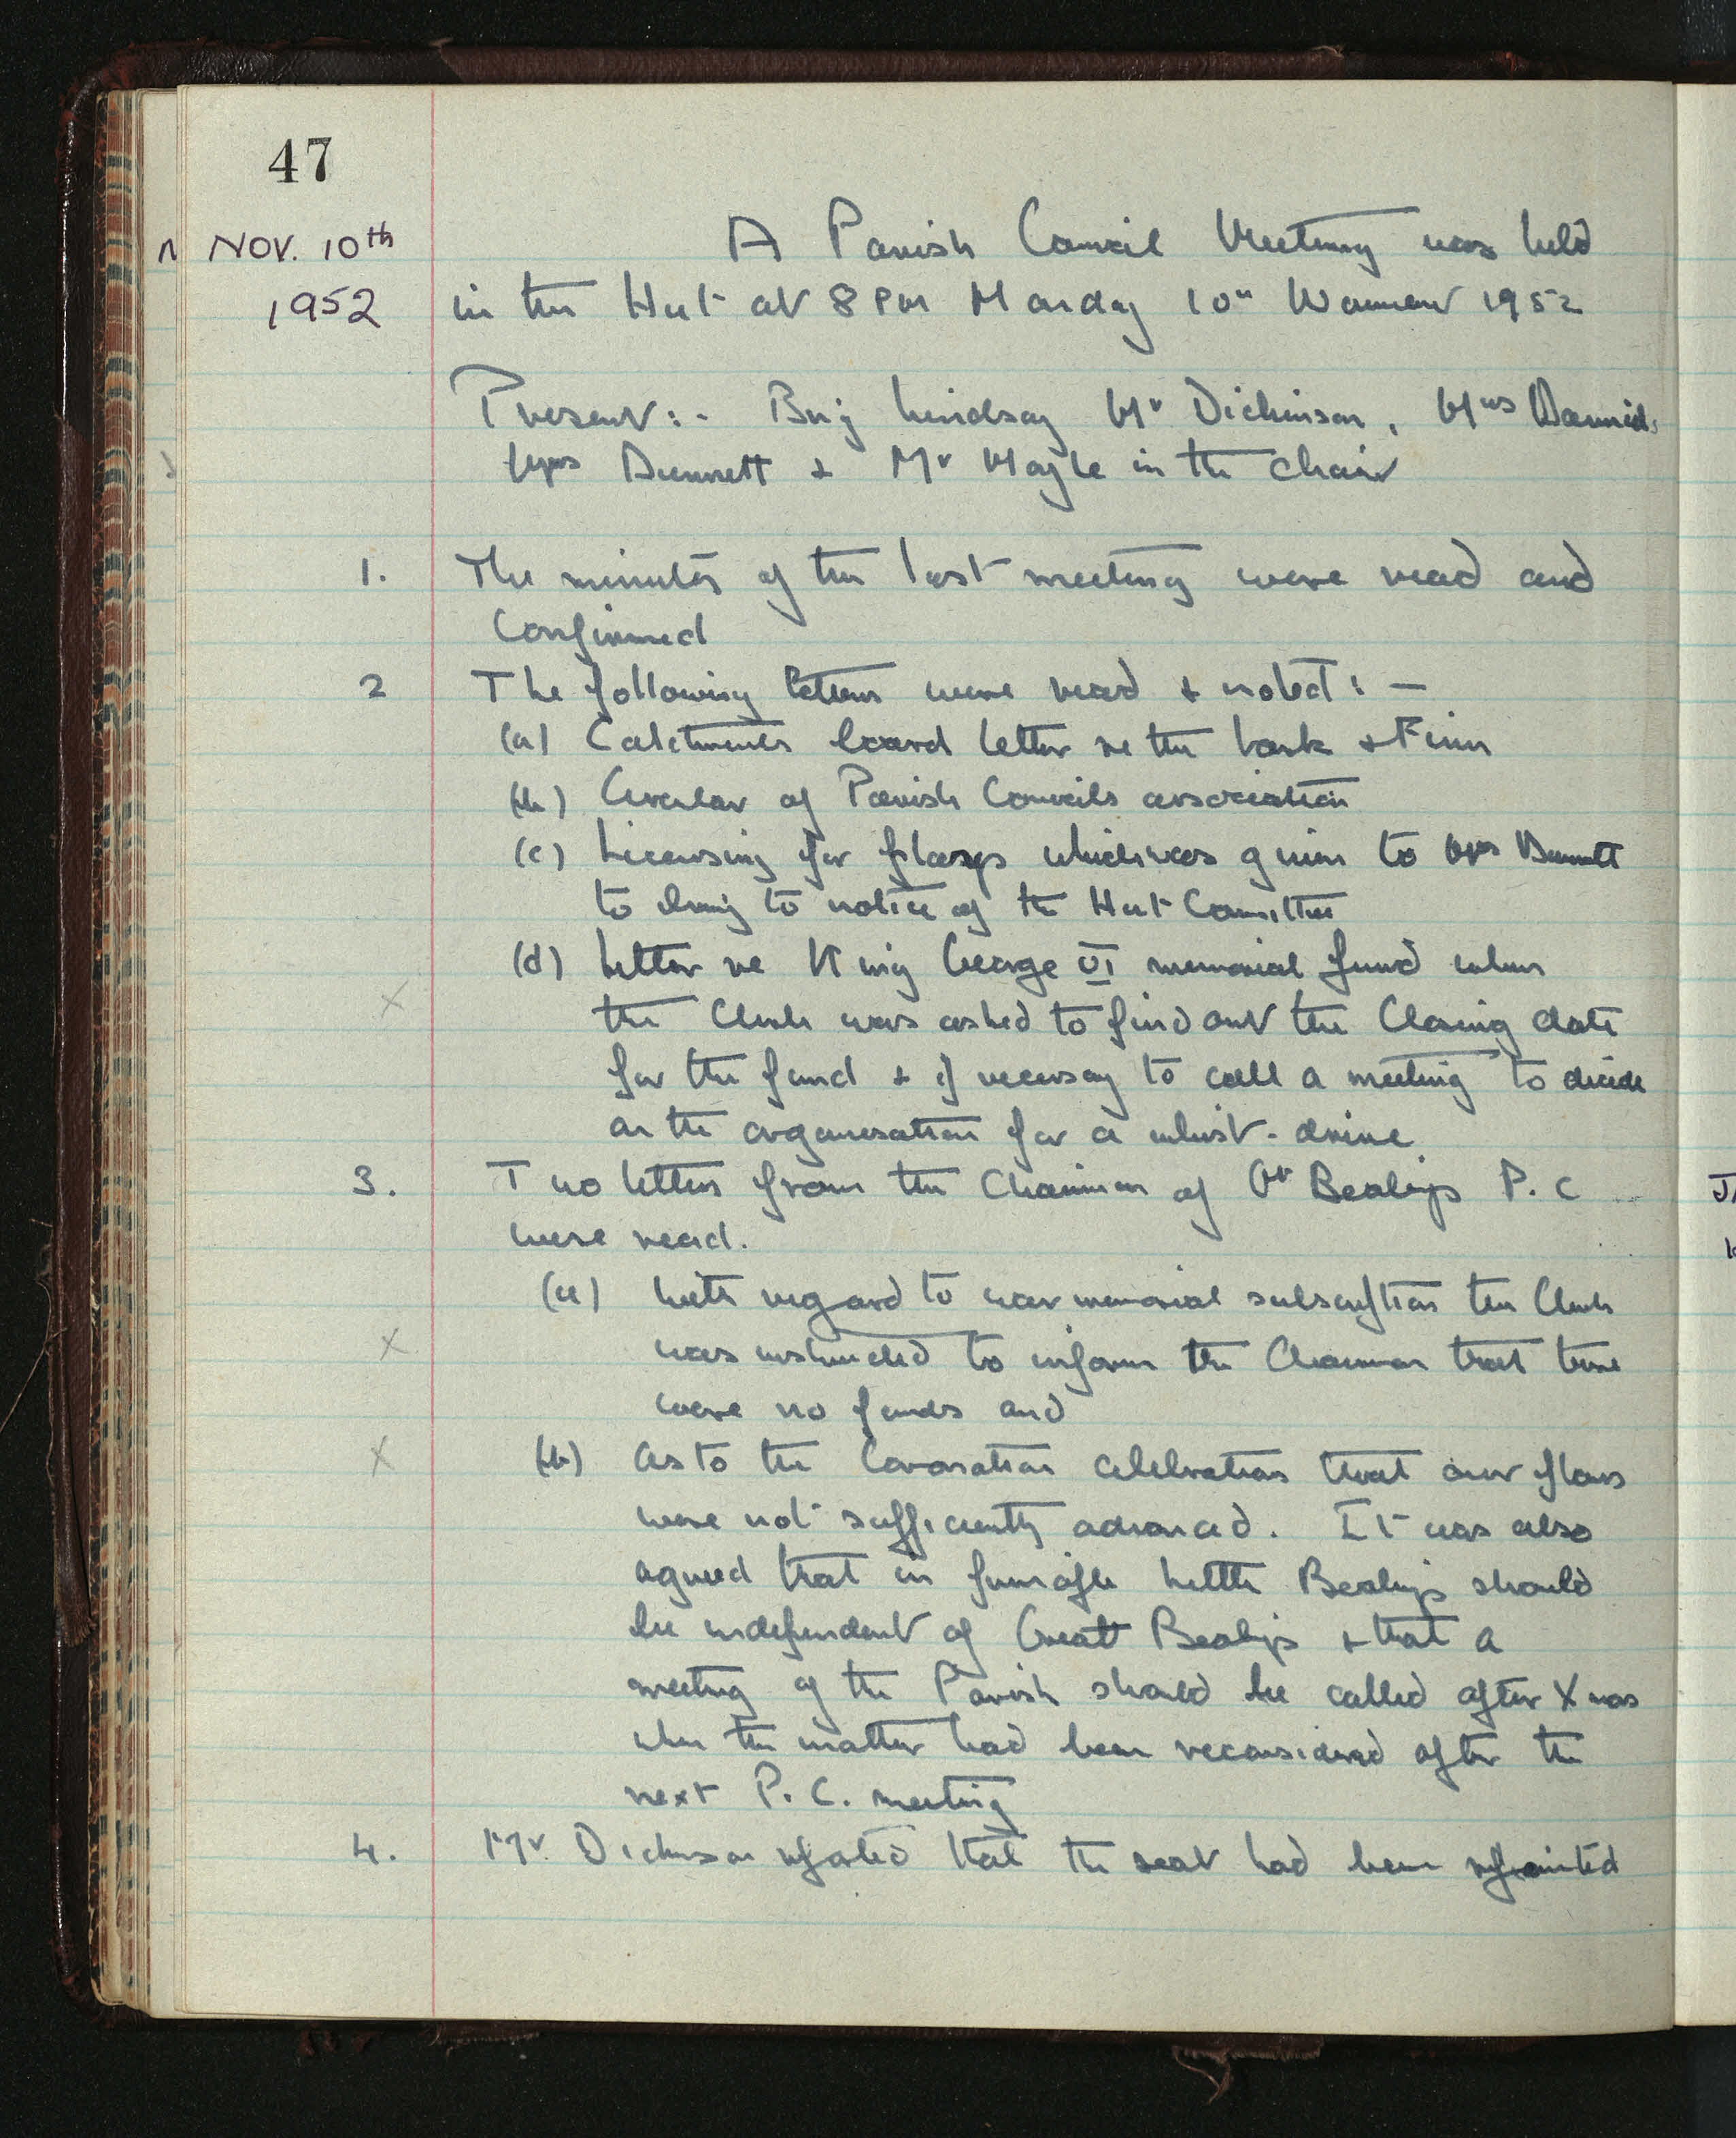 47
NOV. 10th
1952
A Parish Council Meeting was held
in the Hut at 8 PM Monday 10th November 1952
Present:- Brig Lindsay Mr Dickinson, Mrs
Mrs Dunnett & Mr Mayle in the chair
1. The minutes of the last meeting were read and
Confirmed
2 The following letters were read & noted:-
(a) Catchment board letter re the bank & Finn
(b) Circular of Parish Councils association
(c) Licensing for plays which was given to Mrs Dunnett
to bring to notice of the Hut Committee
(d) Letter re King George VI memorial fund when
X the Clerk was asked to find out the Closing date
for the fund & if necessary to call a meeting to decide
on the organisation for a whist-drive
3. Two letters from the Chairman of Gt Bealings P.C
were read.
(a) With regard to war memorial subscription the Clerk
X was instructed to inform the Chairman that there
were no funds and
X (b) as to the Coronation celebrations that our plans
were not sufficiently advanced. It was also
agreed that in principle Little Bealings should
be independent of Great Bealings & that a
meeting of the Parish should be called after Xmas
when the matter had been reconsidered after the
next P.C. meeting
4. Mr. Dickinson reported that the seat had been repainted